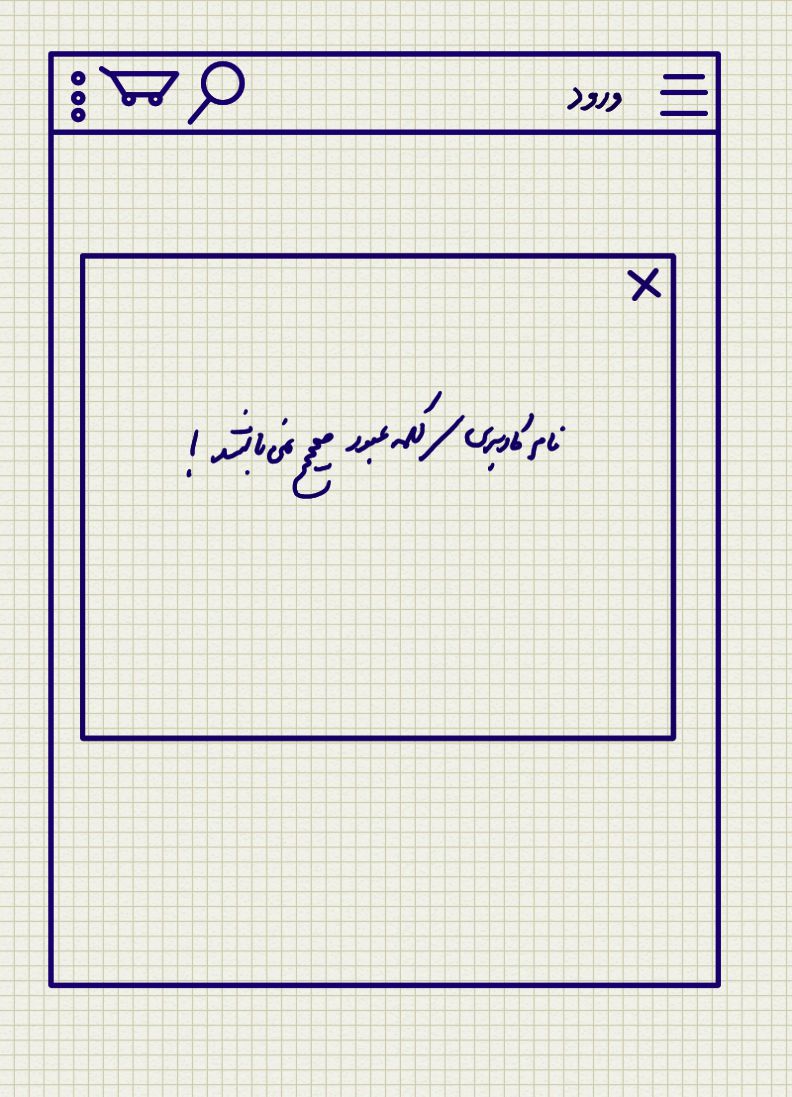 ورود
نام کاربری / کلمه عبور صحیح نمی باشد !